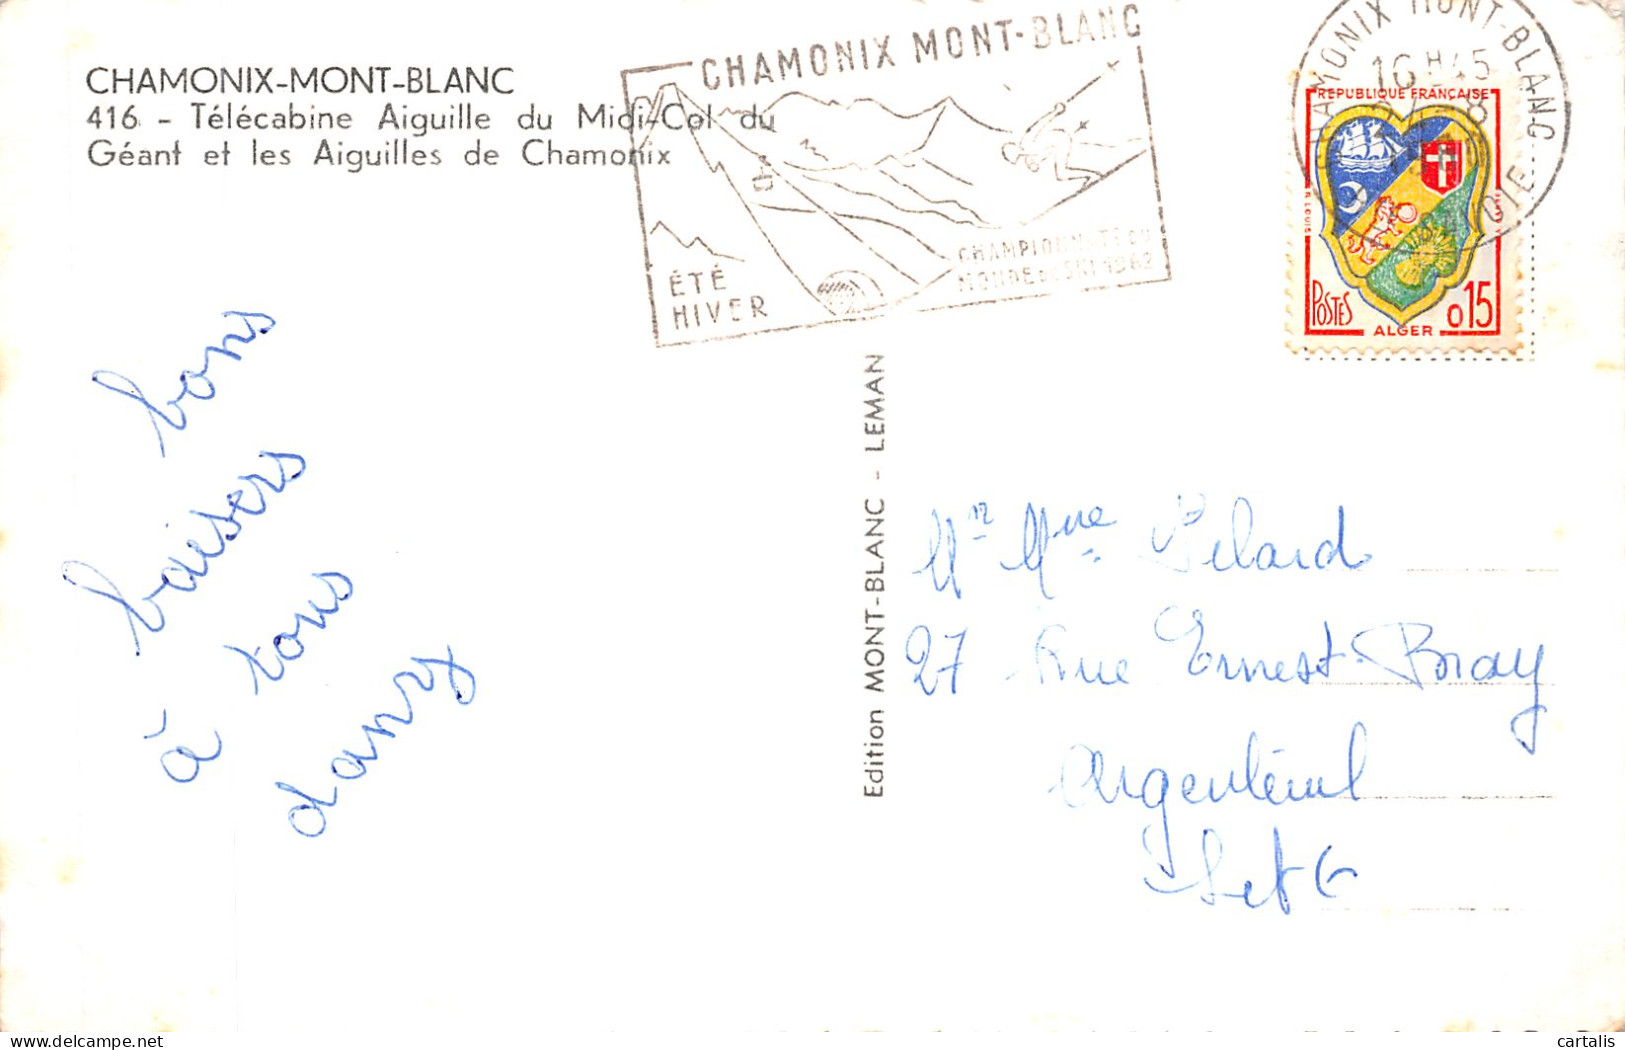 CHAMONIX-MONT-BLANC
416 - Télécabine Aiguille du Midi-Col du
Géant et les Aiguilles de Chamonix
CHAMONIX MONT-BLANC
ÉTÉ
HIVER
CHAMPIONNATS DU
MONDE DE SKI 1962
CHAMONIX MONT-BLANC
16 H 45
REPUBLIQUE FRANÇAISE
POSTES
ALGER
0,15
bons
baisers
à tous
dany
Edition MONT-BLANC - LEMAN
Mr Mme Pelard
27 Rue Ernest Bray
Argenteuil
S et O
cartalis